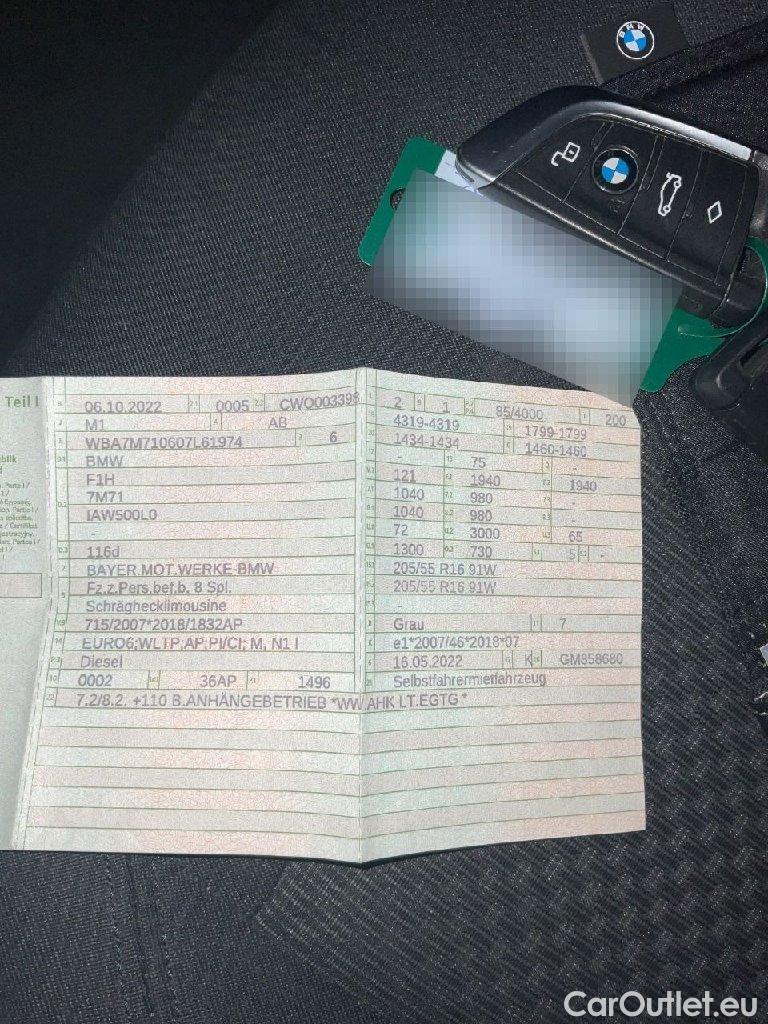 BMW
Teil I
06.10.2022 0005 CWO003398
M1 AB
WBA7M710607L61974 6
BMW
F1H
7M71
IAW500L0
-
116d
BAYER.MOT.WERKE-BMW
Fz.z.Pers.bef.b. 8 Spl.
Schräghecklimousine
715/2007*2018/1832AP
EURO6;WLTP;AP;PI/CI; M, N1 I
Diesel
0002 36AP 1496
2 1 85/4000 200
4319-4319 1799-1799
1434-1434 1460-1460
- 75 -
121 1940 1940
1040 980 -
1040 980 -
72 3000 65
1300 730 5 -
205/55 R16 91W
205/55 R16 91W
-
Grau 7
e1*2007/46*2018*07
16.05.2022 K GM858680
Selbstfahrermietfahrzeug
7.2/8.2. +110 B.ANHÄNGEBETRIEB *WW.AHK LT.EGTG *
CarOutlet.eu